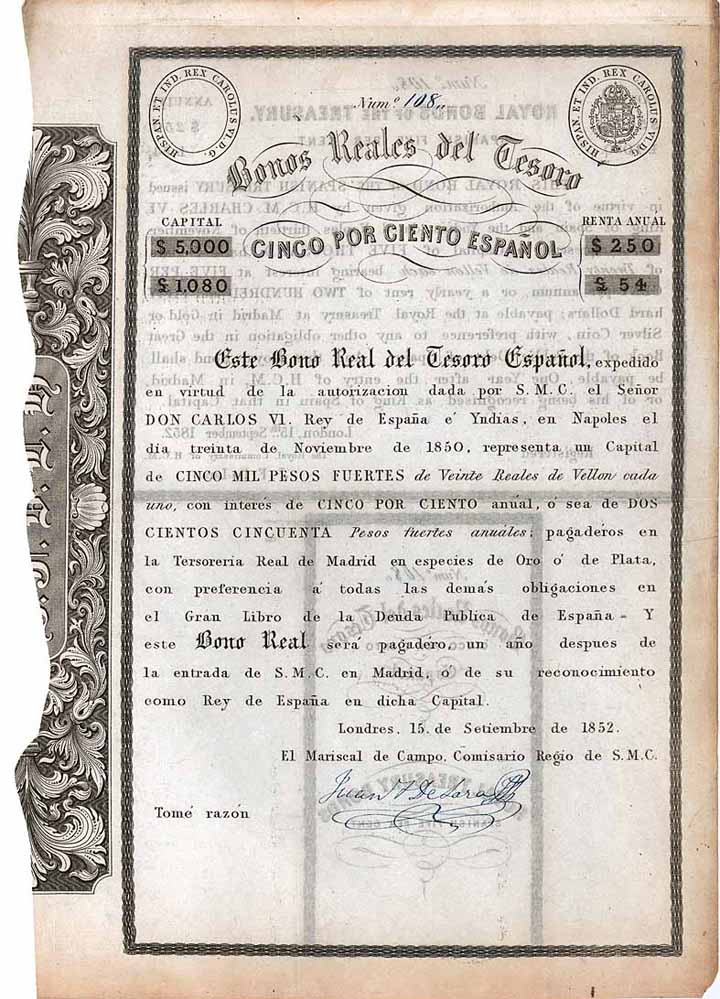 HISPAN. ET IND. REX CAROLUS VI. D. G.
Num.º 108
HISPAN. ET IND. REX CAROLUS VI. D. G.
Bonos Reales del Tesoro
CAPITAL
RENTA ANUAL
CINCO POR CIENTO ESPAÑOL
$ 5,000
$ 250
£ 1.080
£ 54
Este Bono Real del Tesoro Español, expedido
en virtud de la autorizacion dada por S. M. C. el Señor
DON CARLOS VI. Rey de España é Yndias, en Napoles el
dia treinta de Noviembre de 1850, representa un Capital
de CINCO MIL PESOS FUERTES de Veinte Reales de Vellon cada
uno, con interés de CINCO POR CIENTO anúal, ó sea de DOS
CIENTOS CINCUENTA Pesos fuertes anuáles; pagaderos en
la Tersoreria Real de Madrid en especies de Oro ó de Plata,
con preferencia á todas las demás obligaciones en
el Gran Libro de la Deuda Publica de España - Y
este Bono Real será pagadéro, un año despues de
la entrada de S. M. C. en Madrid, ó de su reconocimiento
como Rey de España en dicha Capital.
Londres, 15. de Setiembre de 1852.
El Mariscal de Campo, Comisario Regio de S. M. C.
Tomé razón